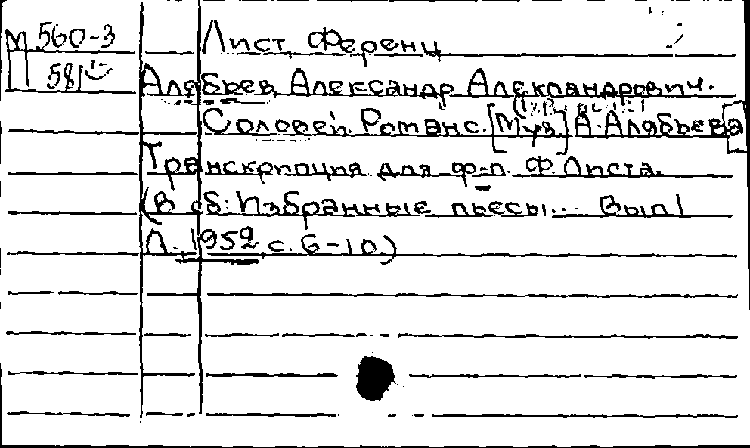 М 560-3 Лист, Ференц
П 581
Алябьев, Александр Александрович.
Соловей. Романс. [Муз.] А. Алябьев[а]
Транскрипция для ф-п. Ф. Листа.
(В сб: Избранные пьесы... Вып 1
Л. 1952, с. 6-10.)